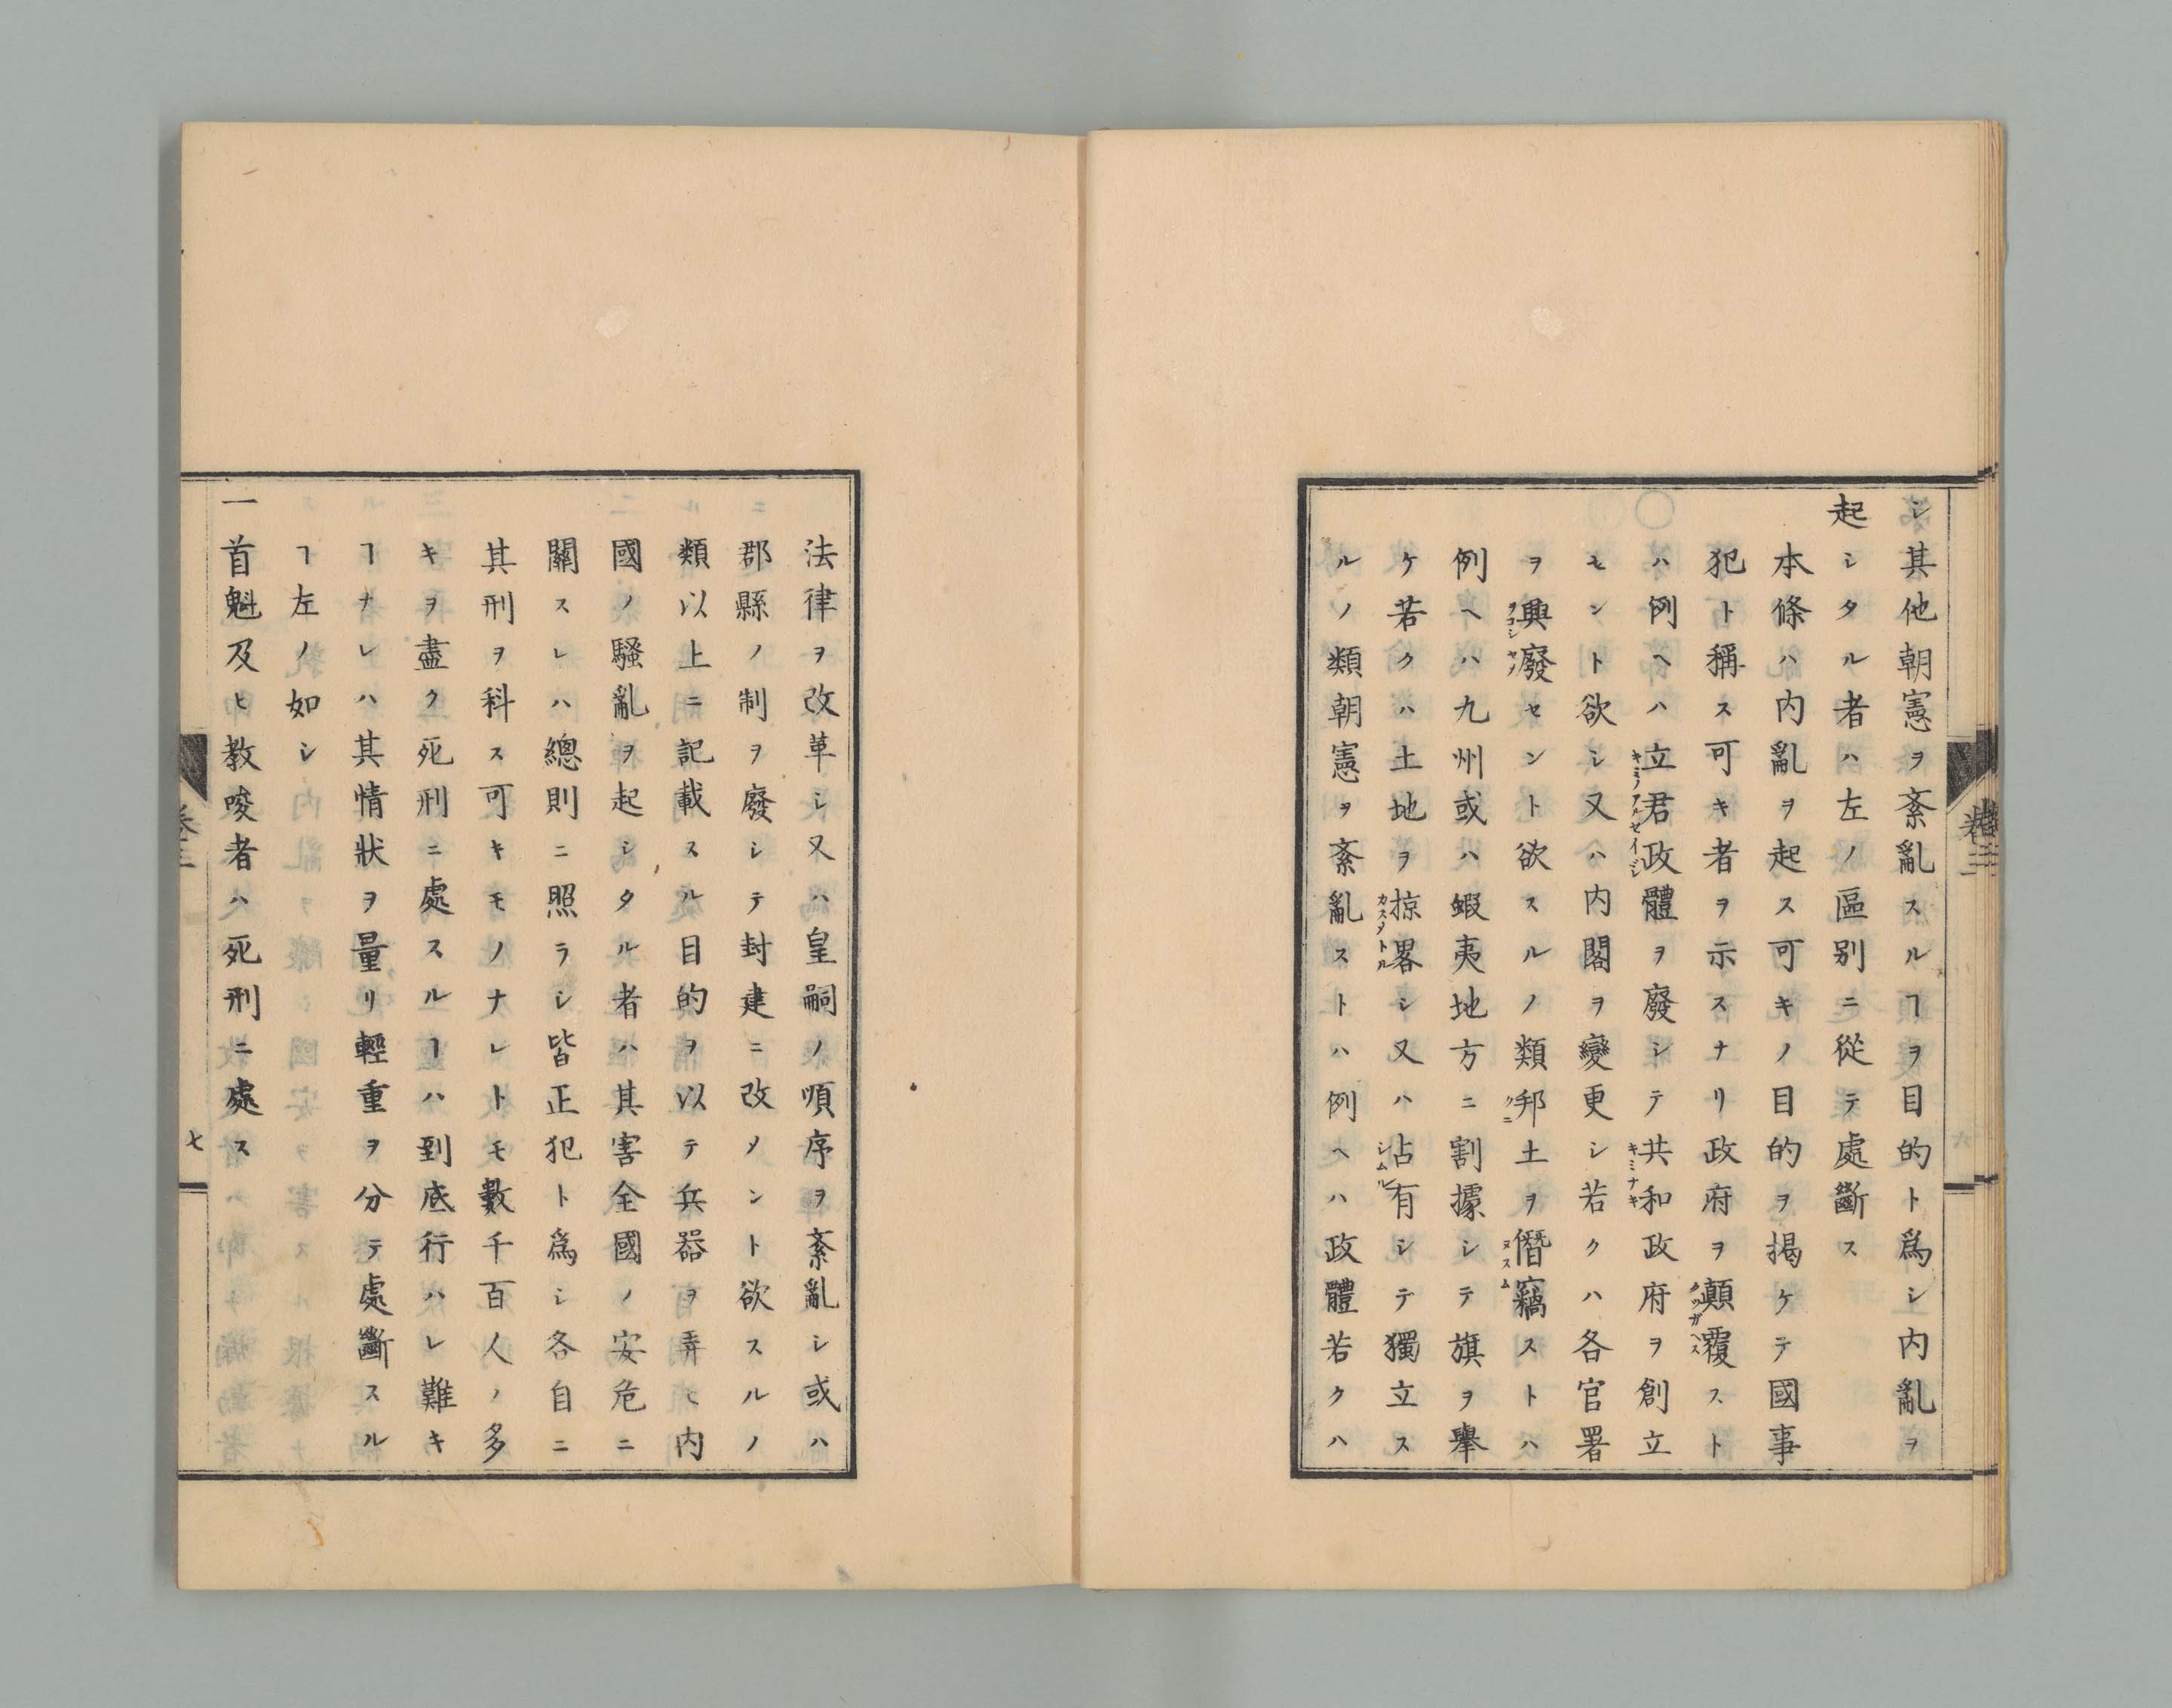 シ其他朝憲ヲ紊亂スルヿヲ目的ト爲シ内亂ヲ
起シタル者ハ左ノ區別ニ從テ處斷ス
本條ハ内亂ヲ起ス可キノ目的ヲ揭ケテ國事
犯ト稱ス可キ者ヲ示スナリ政府ヲ顛覆スト
ハ例ヘハ立君政體ヲ廢シテ共和政府ヲ創立
セント欲シ又ハ内閣ヲ變更シ若クハ各官署
ヲ興廢セント欲スルノ類邦土ヲ僭竊ストハ
例ヘハ九州或ハ蝦夷地方ニ割據シテ旗ヲ擧
ケ若クハ土地ヲ掠畧シ又ハ占有シテ獨立ス
ルノ類朝憲ヲ紊亂ストハ例ヘハ政體若クハ
法律ヲ改革シ又ハ皇嗣ノ順序ヲ紊亂シ或ハ
郡縣ノ制ヲ廢シテ封建ニ改メント欲スルノ
類以上ニ記載スル目的ヲ以テ兵器ヲ弄ヒ内
國ノ騷亂ヲ起シタル者ハ其害全國ノ安危ニ
關スレハ總則ニ照ラシ皆正犯ト爲シ各自ニ
其刑ヲ科ス可キモノナレトモ數千百人ノ多
キヲ盡ク死刑ニ處スルヿハ到底行ハレ難キ
ヿナレハ其情狀ヲ量リ輕重ヲ分テ處斷スル
ヿ左ノ如シ
一首魁及ヒ教唆者ハ死刑ニ處ス
七